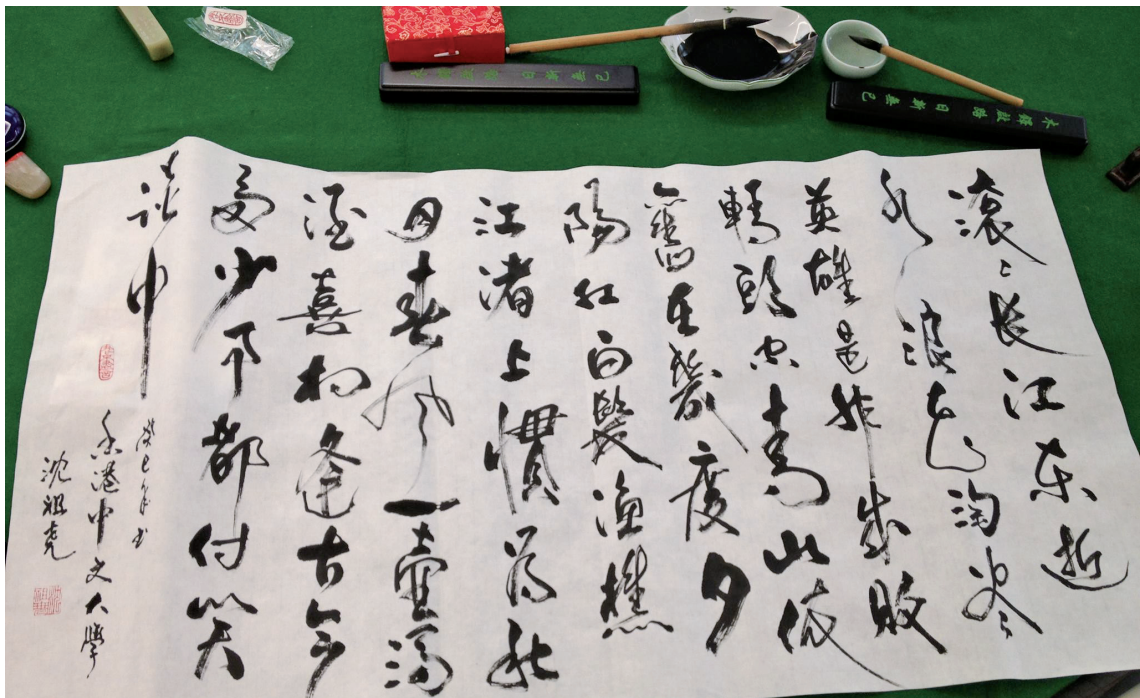 滚〻长江东逝
水浪花淘尽
英雄是非成败
轉頭空青山依
舊在幾度夕
陽红白髮渔樵
江渚上慣看秋
月春风一壶濁
酒喜相逢古今
多少事都付笑
谈中
癸巳年书
香港中文大學
沈祖尧